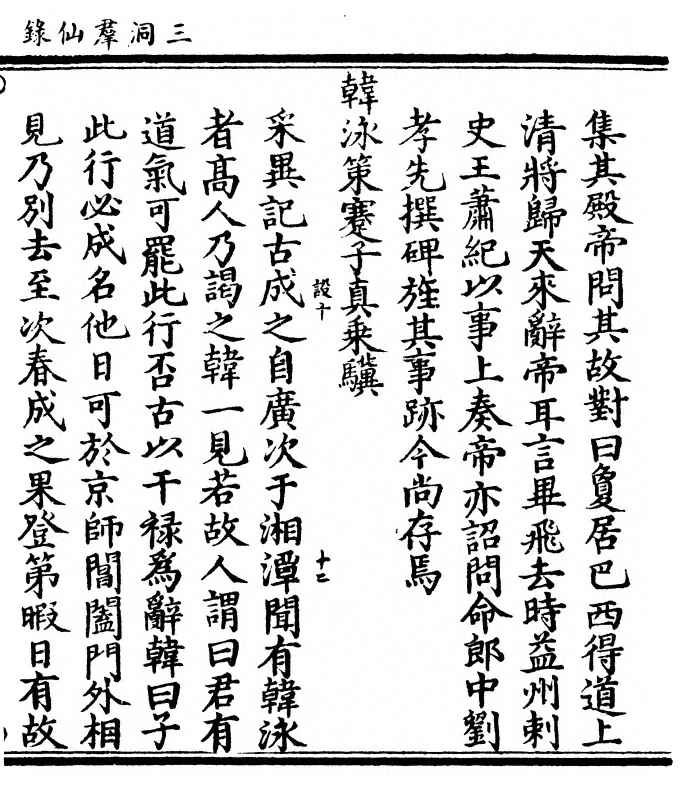 三洞羣仙錄
集其殿帝問其故對曰敻居巴西得道上
清將歸天來辭帝耳言畢飛去時益州刺
史王蕭紀以事上奏帝亦詔問命郎中劉
孝先撰碑旌其事跡今尚存焉
韓泳策蹇子真乗驥
采異記古成之自廣次于湘潭聞有韓泳
者髙人乃謁之韓一見若故人謂曰君有
道氣可罷此行否古以干禄爲辭韓曰子
此行必成名他日可於京師閶闔門外相
見乃别去至次春成之果登第暇日有故
設十
十二